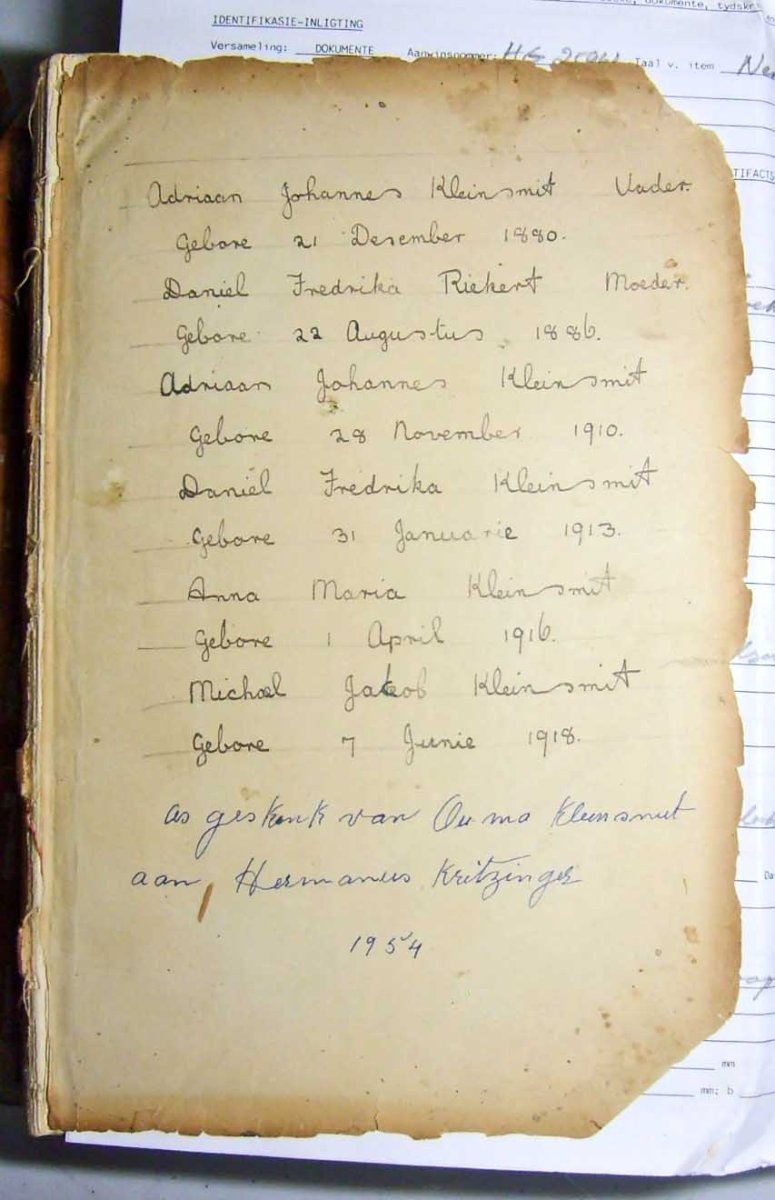 dokumente, tydskr
IDENTIFIKASIE-INLIGTING
Versameling: DOKUMENTE Aanwinsnommer: Taal v. item
TIFACTS
Adriaan Johannes Kleinsmit Vader.
Gebore 21 Desember 1880.
Daniel Fredrika Riekert Moeder.
Gebore 22 Augustus 1886.
Adriaan Johannes Kleinsmit
Gebore 28 November 1910.
Daniel Fredrika Kleinsmit
Gebore 31 Januarie 1913.
Anna Maria Kleinsmit
Gebore 1 April 1916.
Michael Jakob Kleinsmit
Gebore 7 Junie 1918.
as geskenk van Ouma Kleinsmit
aan, Hermanus Kritzinger
1954
mm
mm; b